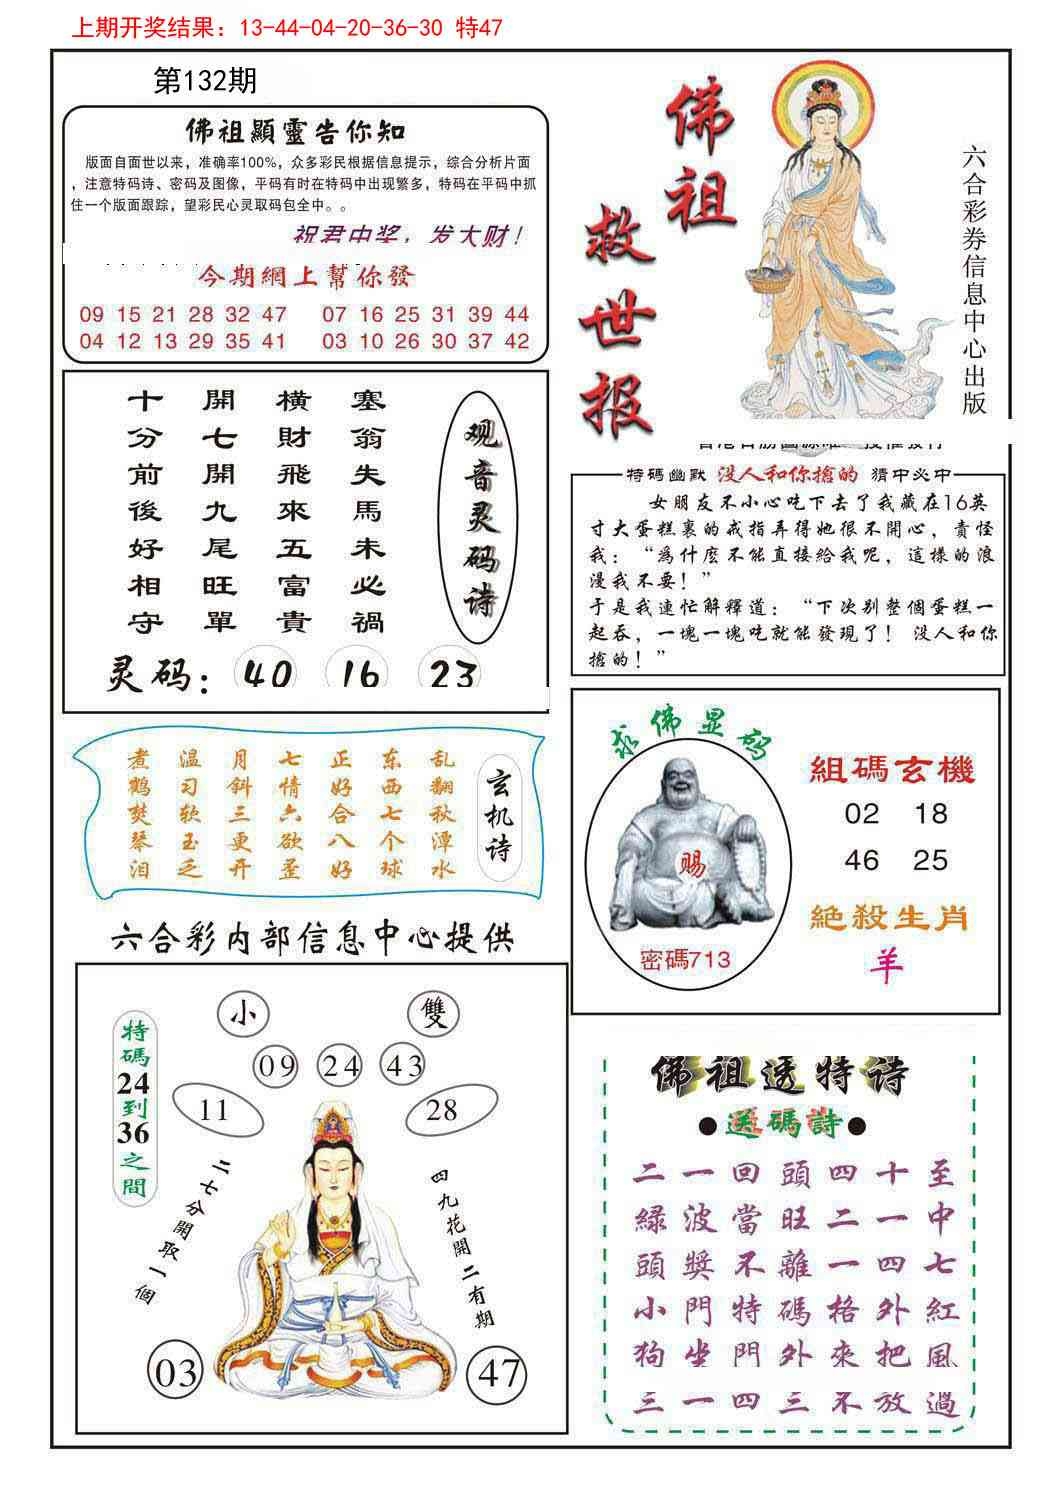 上期开奖结果：13-44-04-20-36-30 特47
第132期
佛祖顯靈告你知
版面自面世以来，准确率100%，众多彩民根据信息提示，综合分析片面
，注意特码诗、密码及图像，平码有时在特码中出现繁多，特码在平码中抓
住一个版面跟踪，望彩民心灵取码包全中。。
祝君中奖，发大财！
今期網上幫你發
09 15 21 28 32 47 07 16 25 31 39 44
04 12 13 29 35 41 03 10 26 30 37 42
佛祖救世报
六合彩券信息中心出版
塞翁失馬未必禍
橫財飛來五富貴
開七開九尾旺單
十分前後好相守
观音灵码诗
灵码：40 16 23
特碼幽默 没人和你搶的 猜中必中
女朋友不小心吃下去了我藏在16英
寸大蛋糕裏的戒指弄得她很不開心，責怪
我：“爲什麽不能直接給我呢，這樣的浪
漫我不要！”
于是我連忙解釋道：“下次别整個蛋糕一
起吞，一塊一塊吃就能發現了！没人和你
搶的！”
玄机诗
乱翻秋潭水
东西七个球
正好合八好
七情六欲歪
月斜三更开
温习软玉乏
煮鹤焚琴泪
求佛显码
赐
密碼713
組碼玄機
02 18
46 25
絕殺生肖
羊
六合彩内部信息中心提供
小 雙
09 24 43
11 28
特碼24到36之間
二七分開取一個
四九花開二有期
03 47
佛祖透特诗
●送碼詩●
二一回頭四十至
緑波當旺二一中
頭獎不離一四七
小門特碼格外紅
狗坐門外來把風
三一四三不放過